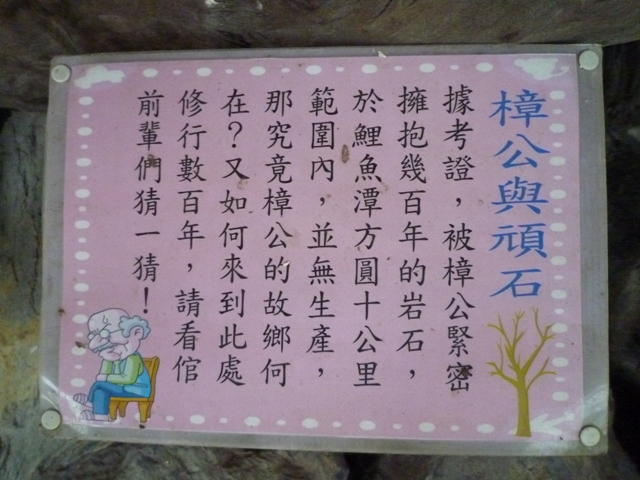 樟公與頑石
據考證，被樟公緊密
擁抱幾百年的岩石，
於鯉魚潭方圓十公里
範圍內，並無生產，
那究竟樟公的故鄉何
在？又如何來到此處
修行數百年，請看倌
前輩們猜一猜！